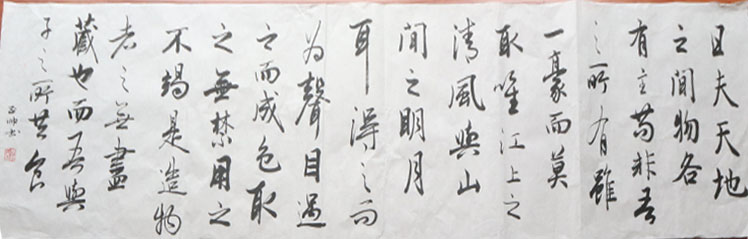 且夫天地
之間物各
有主苟非吾
之所有雖
一豪而莫
取唯江上之
清風與山
間之明月
耳得之而
為聲目遇
之而成色取
之無禁用之
不竭是造物
者之無盡
藏也而吾與
子之所共食